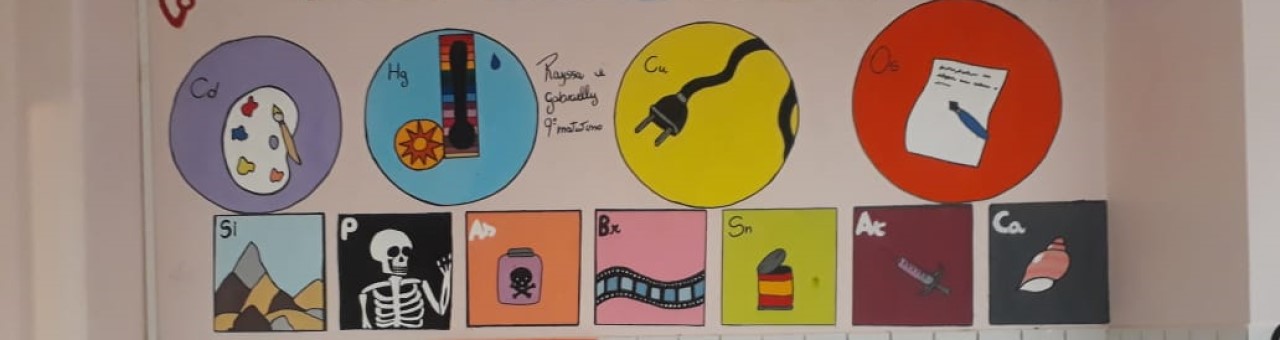 Cd
Hg
Rayssa e
Gabrielly
9º matutino
Cu
Os
Si
P
As
Br
Sn
Ac
Ca